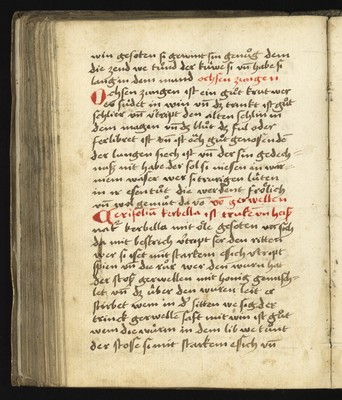 win gesoten si gewint sin genůg dem
die zend we tůnd der kúwe si vn̄ habe si
lang in dem mund ochsen zungen
Ochsen zungen ist ein gůt krut wer
es súdet in win vn̄ dz trinkt ist gůt
schlier vn̄ vtript den alten schlim in
dem magen vn̄ dz blůt dz ful oder
ferbibret ist vn̄ ist och gůt genossende
der lungen siech ist vn̄ der sin gedech=
nuß nit habe der sol si niessen in war
mem wasser wer si trurigen lúten
in ir essen tůt die werdent frölich
vn̄ wol gemůt da vō vō gerwellen
Cerifoliū kerbella ist truke vn̄ haß
kerbella mit öle gesoten
da mit bestrich vtript för den ritten
wer si isset mit starkem essich vtript
spien vn̄ die růr wer den wurm hat
der stoß gerwellen mit honig gemisch=
let vn̄ dz úber den wuren leit er
stirbet wem in dʼ sitten we sig der
trinck gerwelle saft mit win ist gůt
wem die wúrm in dem lib we tůnt
der stosse si mit starkem essich vn̄